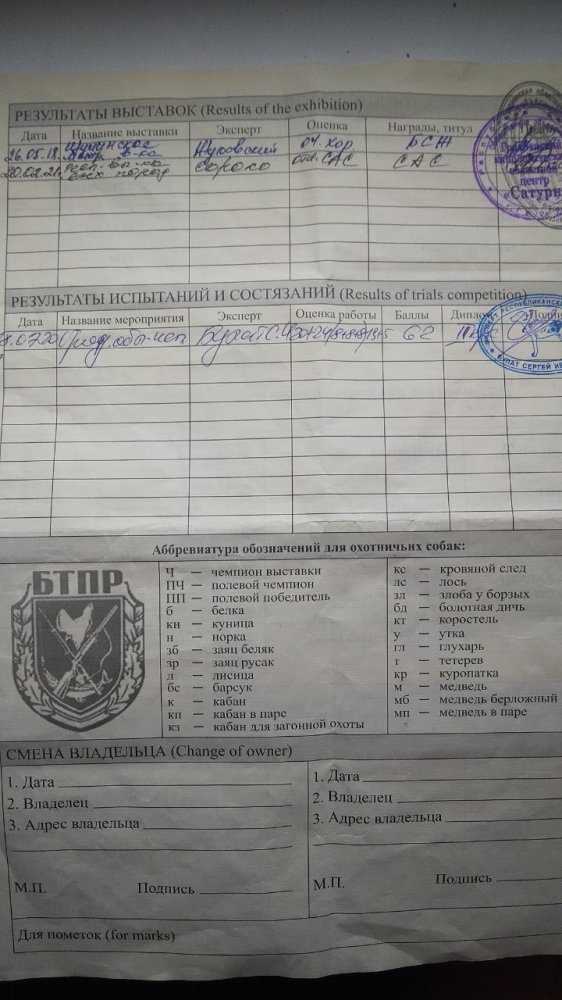 РЕЗУЛЬТАТЫ ВЫСТАВОК (Results of the exhibition)
Дата Название выставки Эксперт Оценка Награды, титул
26.05.18. Жуковский оч. хор БСЖ
20.02.21. всех пород Сороко отл. САС САС
центр
«Сатурн
РЕЗУЛЬТАТЫ ИСПЫТАНИЙ И СОСТЯЗАНИЙ (Results of trials competition)
Дата Название мероприятия Эксперт Оценка работы Баллы Диплом
62
БУЛАТ СЕРГЕЙ
Аббревиатура обозначений для охотничьих собак:
БТПР
Ч — чемпион выставки
ПЧ — полевой чемпион
ПП — полевой победитель
б — белка
кн — куница
н — норка
зб — заяц беляк
зр — заяц русак
л — лисица
бс — барсук
к — кабан
кп — кабан в паре
кз — кабан для загонной охоты
кс — кровяной след
лс — лось
зл — злоба у борзых
бд — болотная дичь
кт — коростель
у — утка
гл — глухарь
т — тетерев
кр — куропатка
м — медведь
мб — медведь берложный
мп — медведь в паре
СМЕНА ВЛАДЕЛЬЦА (Change of owner)
1. Дата
2. Владелец
3. Адрес владельца
М.П. Подпись
1. Дата
2. Владелец
3. Адрес владельца
М.П. Подпись
Для пометок (for marks)